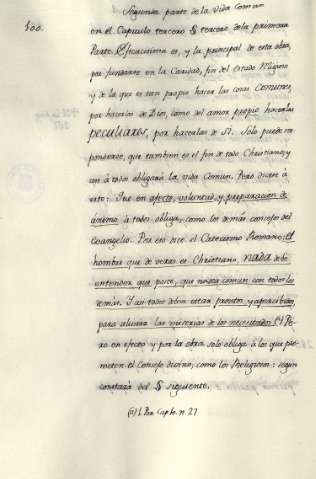 Segunda parte de la Vida Comun
100.
en el Capitulo tercero § tercero de la primera
Parte. Eficacisima es, y la principal de esta obra,
por fundarse en la Caridad, fin del estado Religioso
y de la que es tan propio hacer las cosas Comunes,
por hacerlas de Dios, como del amor propio hacerlas
peculiares, por hacerlas de sí. Solo puede res
ponderse, que tambien es el fin de todo Christiano, y
un à todos obligaría la vida Comun. Pero dicese à
esto: Que en afecto, voluntad, y preparacion de
animo à todos obliga, como los demás consejos del
Evangelio. Por eso dice el Catecismo Romano: el
hombre que de veras es Christiano, nada debe
entender que posee, que no sea comun con todos los
demás. Y asi todos deben estar prontos, y apercibidos
para aliviar las miserias de los necesitados. (a) Pe
ro en efecto y por la obra solo obliga à los que pro
meten el Consejo divino, como los Religiosos: segun
constará del § siguiente.
(a) 3. Par. Cap. 10. n. 27